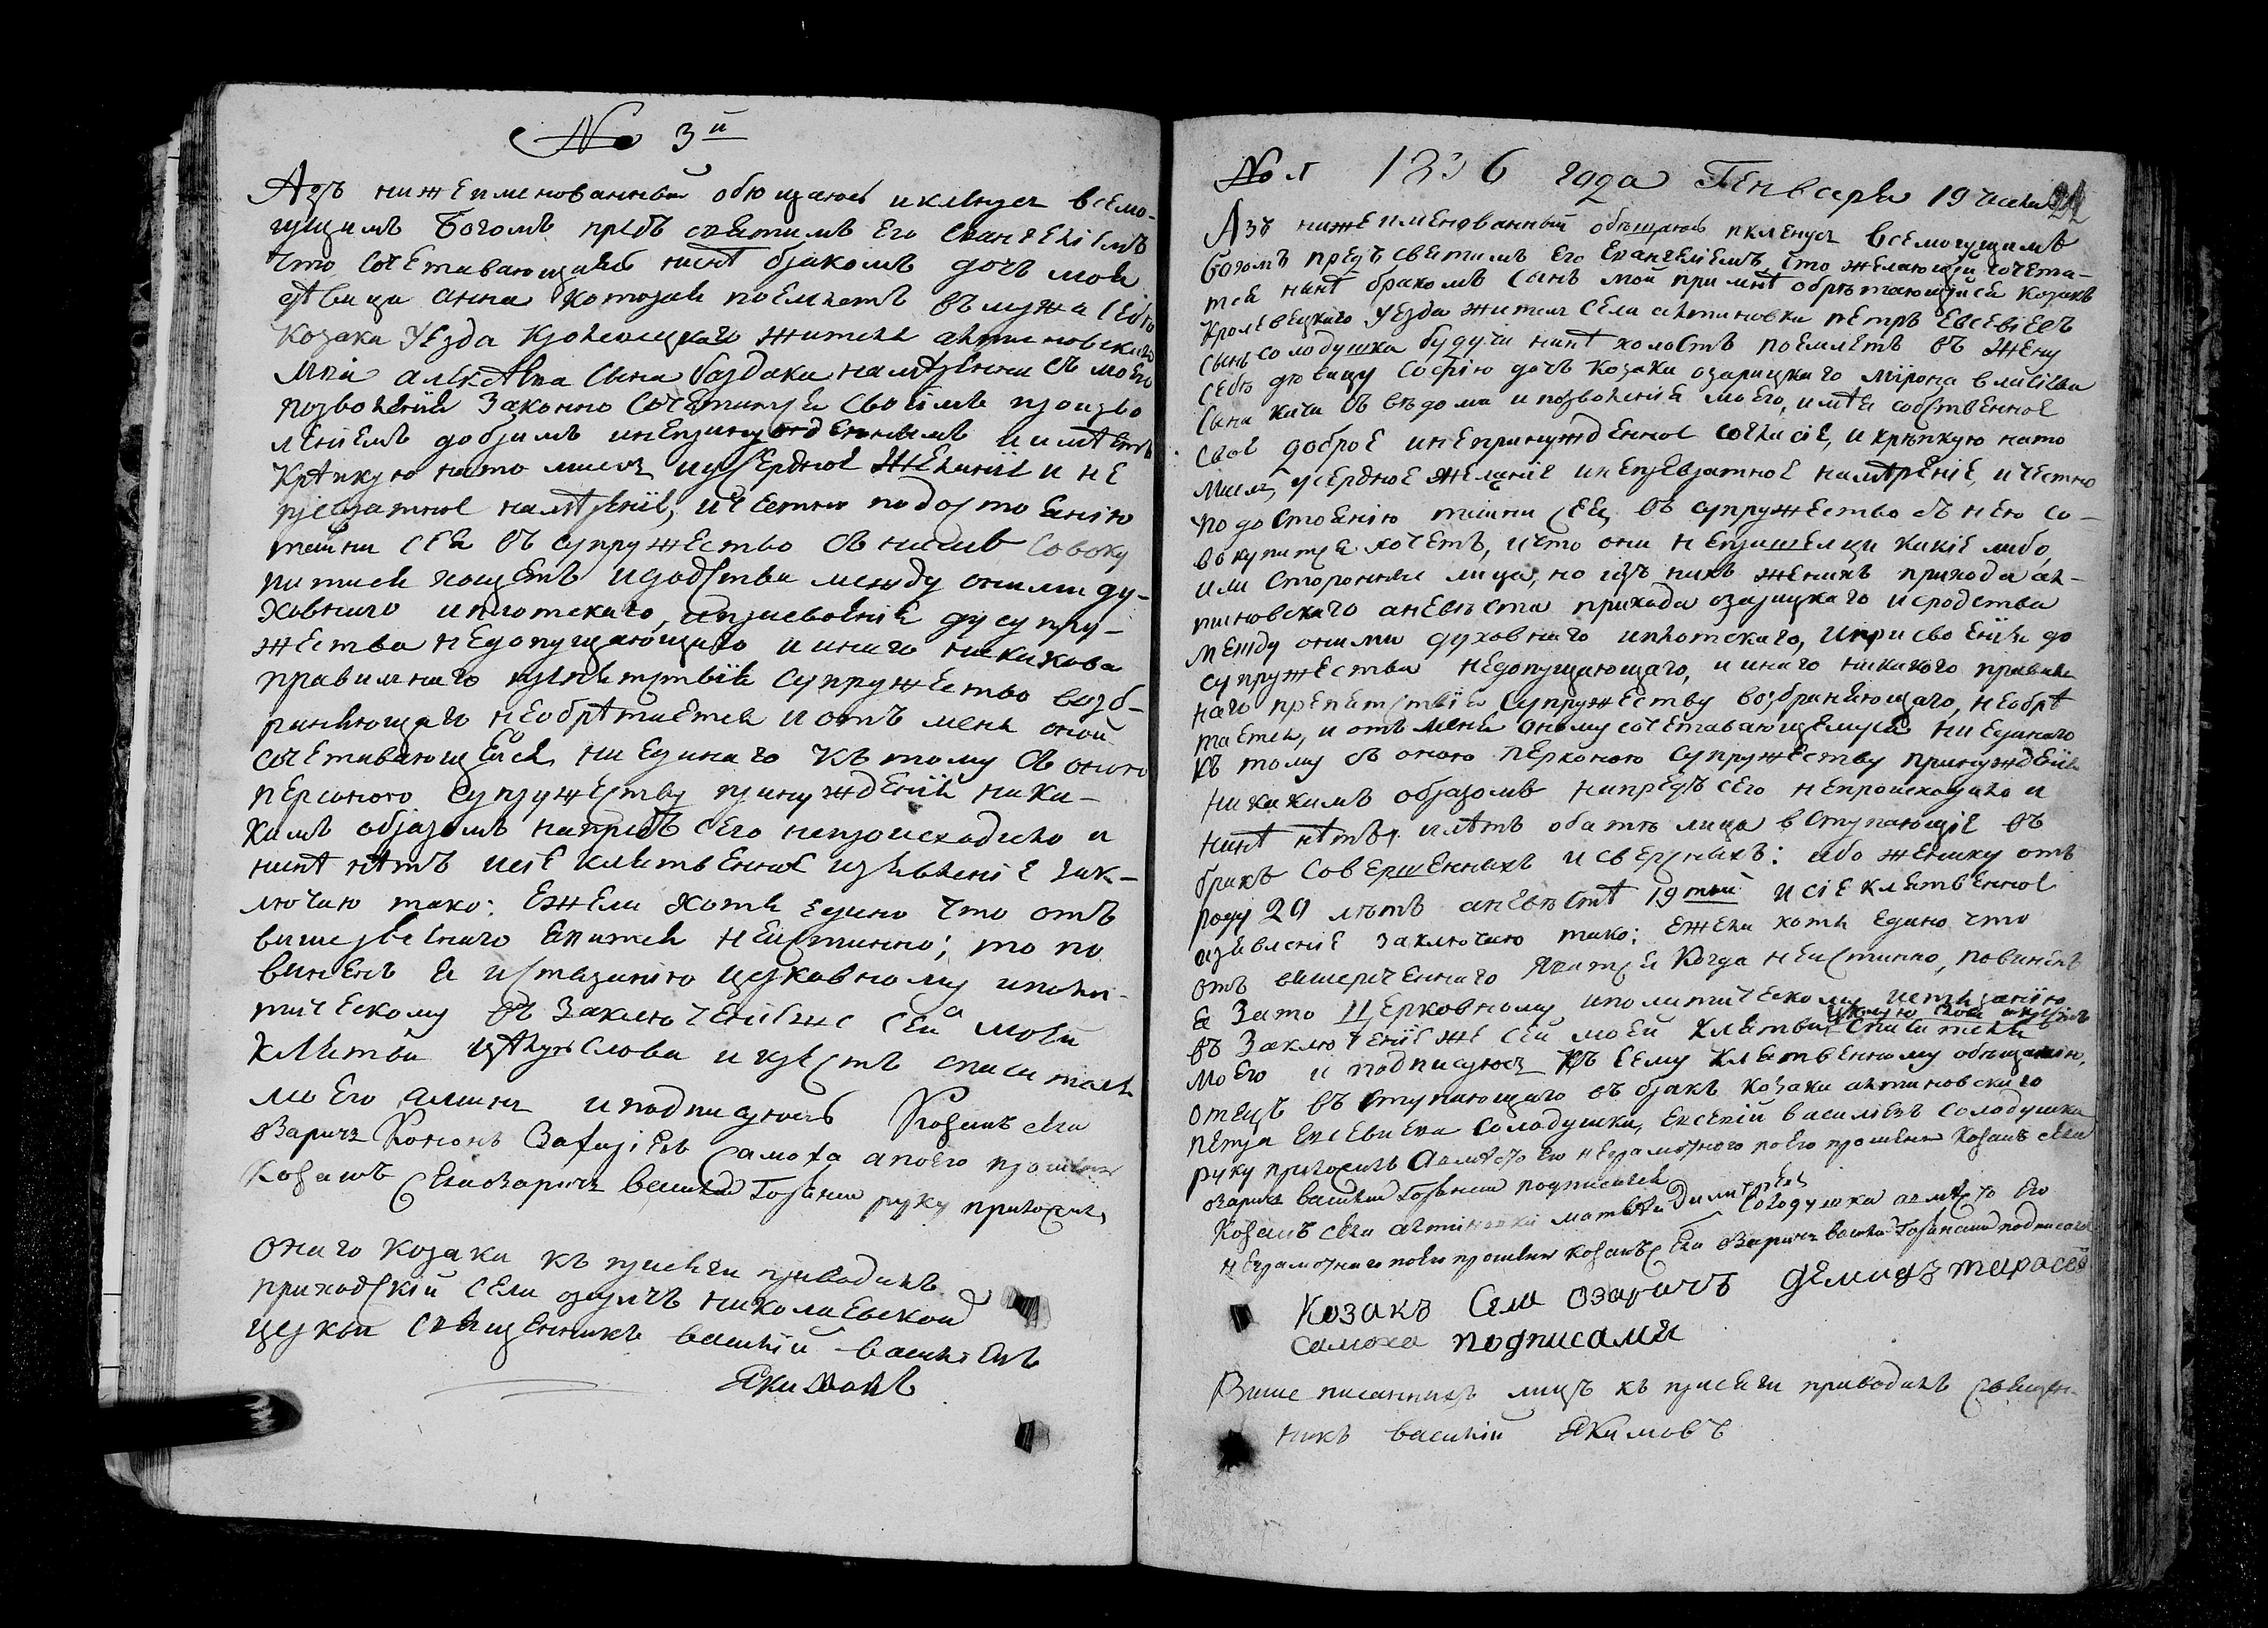 No 3й
Азъ нижеименованный обющаюсь и клянусь всемо-
гущимъ Богомъ предъ святимъ Его Евангеліемъ
что сочетавающаяся нинѣ бракомъ дочь моя
дѣвица анна которая поемлетъ въ мужа себѣ
козака уезда Кролевецкаго жителя алтиновскаго
алексѣева сина баздака намѣренни съ моего
позволенія законно сочетатися своимъ произво
леніемъ добримъ инепринужденнимъ и имѣетъ
крѣпкую нато мисль и усердное желаніе и не
превратное намѣреніе, и честно подостоянію
тайни сея въ супружество съ нимъ совоку
питися хощетъ и сродства между оними ду-
ховнаго иплотскаго, и присвоенія до супру-
жества недопущающаго и инаго никакова
правилнаго препятствія супружество возб-
раняющаго необрѣтается и отъ мене оной
сочетавающейся ни единаго къ тому съ оною
персоною супружеству принужденія ника-
кимъ образомъ напредъ сего непроисходило и
нинѣ нѣтъ и сіе клятвенное изъявленіе зак-
лючаю тако: ежели хотя едино что отъ
вишезвеснаго явится неистинно; то по
виненъ я истязанію церковному иполи-
тическому въ заключеніеже сея моея
клятви цѣлую слова и крестъ спасителя
моего аминь и подписуюсь Козакъ села
Озаричъ Самоха а поего прошенію
Козакъ села Озаричъ василий руку приложилъ
Онаго козака къ присяги приводилъ
приходскій села озаричъ николаевской
церкви священникъ василій василіевъ
Якимовъ
No 1 1836 года Генваря 19 числа 22
Азъ нижеименованный обѣщаюсь и кленусь всемогущимъ
Богомъ предъ святимъ Его Евангеліемъ что желающій сочета-
тся нинѣ бракомъ синъ мой при мнѣ обрѣтающійся козакъ
Кролевецкаго уезда житель села алтиновки петръ евсевіевъ
синъ солодушка будучи нинѣ холостъ поемлетъ въ жену
себѣ дѣвицу софію дочь козака озарицкаго мірона
сина кача съ вѣдома и позволенія моего, имѣя собственное
свое доброе инепринужденное согласіе, и крѣпкую нато
мисль, усердное желаніе инепревратное намѣреніе, и честно
по достоянію тайни сея въ супружество съ нею со-
вокупитися хочетъ, и что они непришелци какіе либо,
или сторонніе лица, но изъ нихъ женихъ прихода ал-
тиновскаго аневѣста прихода озарицкаго и сродства
между оними духовнаго иплотскаго, и присвоенія до
супружества недопущающаго, и инаго никакого правил
наго препятствія супружеству возбраняющаго, необрѣ
тается, и отъ мене оному сочетавающемуся ни единаго
къ тому съ оною персоною супружеству принужденія
никакимъ образомъ напредъ сего непроисходило и
нинѣ нѣтъ, и лѣтъ оба тѣ лица вступающіе въ
бракъ совершенныхъ и сверсныхъ: ибо жениху отъ
роду 20 лѣтъ аневѣстѣ 19 той и сіе клятвенное
изъявленіе заключаю тако: ежели хотя едино что
отъ вишереченнаго явитсе когда неистинно, повиненъ
я зато церковному иполитическому истязанію
въ заключеніе же сей моей клятви цѣлую слова и крестъ спасителя
моего и подписуюсь къ сему клятвенному обѣщанію,
отецъ въступающаго въ бракъ козака алтиновскаго
петра евсевиева солодушки, евсевій василіевъ солодушка
руку приложилъ авмѣсто его неграмотного поего прошенію Козакъ села
озаричъ василий подписался
Козакъ села алтиновки матвей димитріевъ солодушка авмѣсто его
неграмотнаго поего прошенію козакъ села Озаричъ василий подписался
Козакъ села озаричъ демидъ тарасов
самоха подписался
Више писаннихъ лицъ къ присяги приводилъ священ-
никъ василій Якимовъ